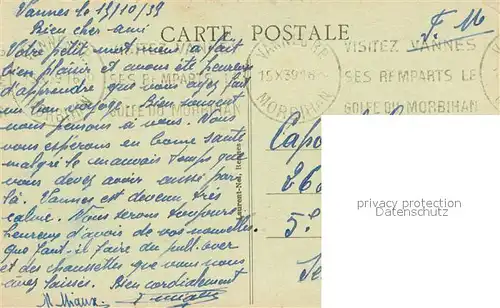 Vannes le 15/10/39
CARTE POSTALE
F. M
Bien cher ami
Votre petit mot nous a fait
bien plaisir et avons été heureux
d'apprendre que vous ayez fait
un bon voyage. Bien souvent
nous pensons à vous. Nous
vous espérons en bonne santé
malgré le mauvais temps que
vous devez avoir aussi par
là. Vannes est devenu très
calme. Nous serons toujours
heureux d'avoir de vos nouvelles
que faut-il faire du pull-over
et des chaussettes que vous nous
avez laissés. Bien cordialement
VANNES R.P.
15 X 39
MORBIHAN
VISITEZ VANNES
SES REMPARTS LE
GOLFE DU MORBIHAN
SES REMPARTS LE
GOLFE DU MORBIHAN
Laurent-Nel, Rennes
Capo
26
5.e
privacy protection
Datenschutz